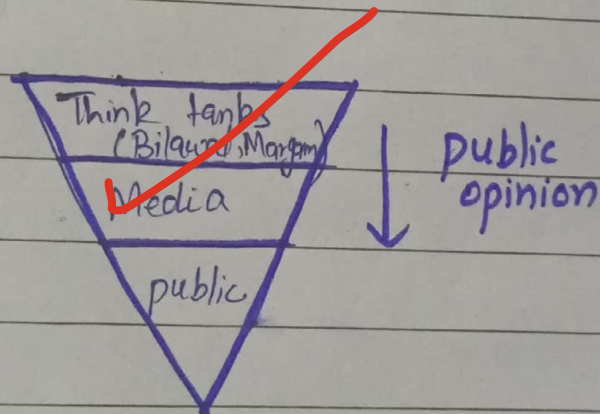 Think tanks
(Bilawal, Maryam)
Media
public
public
opinion